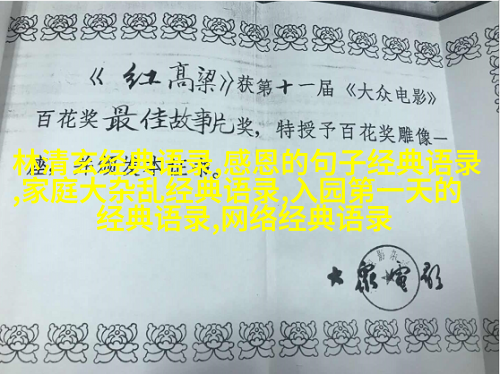 《红高粱》获第十一届《大众电影》
百花奖最佳故事片奖,特授予百花奖雕像一
座,并颁发本证书。
林清玄经典语录,感恩的句子经典语录
,家庭大杂乱经典语录,入园第一天的
经典语录,网络经典语录
大众电影